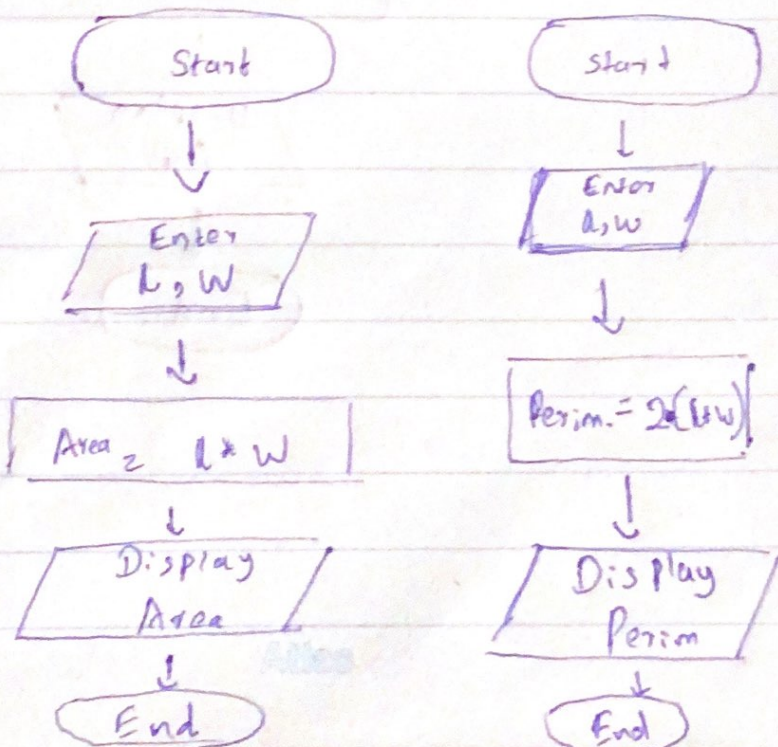 Start
Enter
L, W
Area = L * W
Display
Area
End
Start
Enter
L, W
Perim. = 2(L+W)
Display
Perim
End